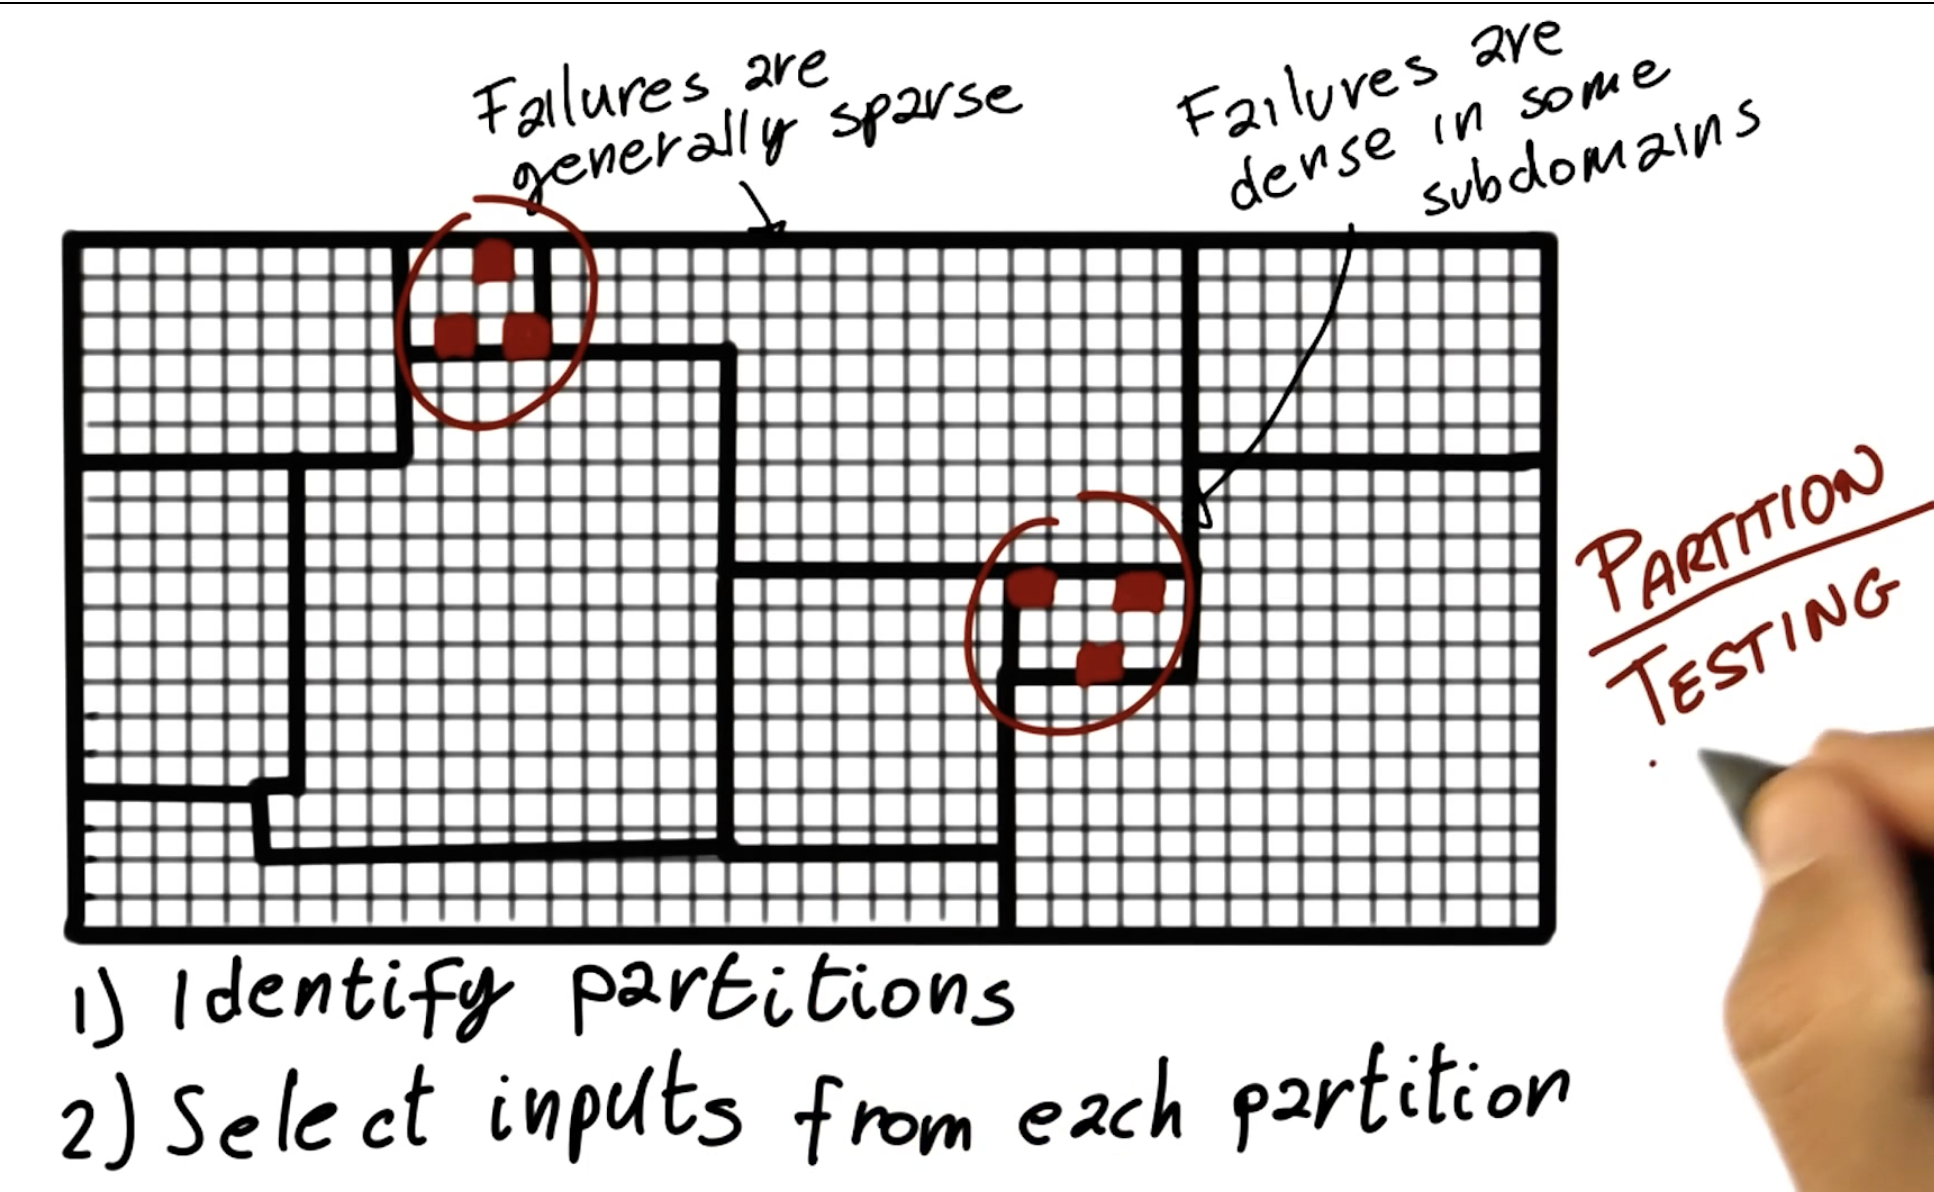 Failures are
generally sparse
Failures are
dense in some
subdomains
PARTITION
TESTING
1) Identify partitions
2) Select inputs from each partition